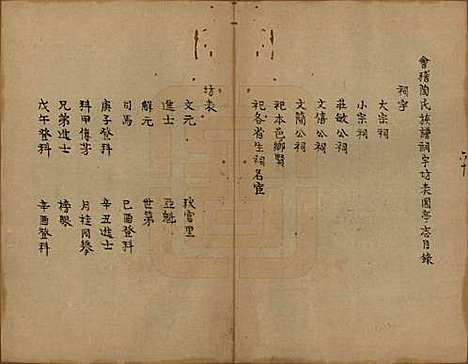 會稽陶氏族譜祠宇坊表園亭志目錄
祠宇
大宗祠
小宗祠
莊敏公祠
文僖公祠
文簡公祠
祀本邑鄉賢
祀各省生祠名宦
坊表
文元 狀當里
進士 亞魁
解元 世第
司馬 己酉登科
庚子登科 辛丑進士
科甲傳芳 月桂同攀
兄弟進士 榜眼
戊午登科 辛酉登科